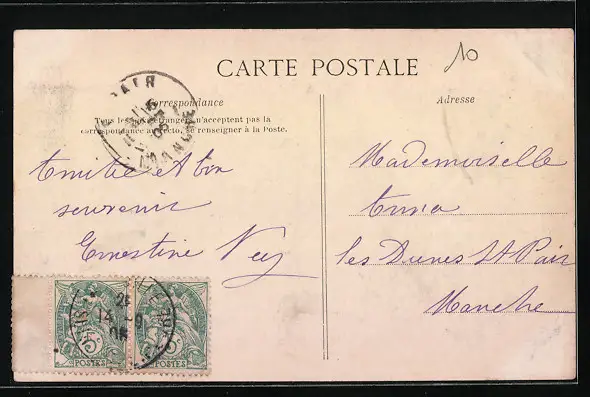 10
CARTE POSTALE
Correspondance
Tous les pays étrangers n'acceptent pas la
correspondance au recto, se renseigner à la Poste.
Amitié et bon
souvenir
Ernestine
Adresse
Mademoiselle
Anna
les Dunes St Pair
Manche
5c 5c
POSTES POSTES